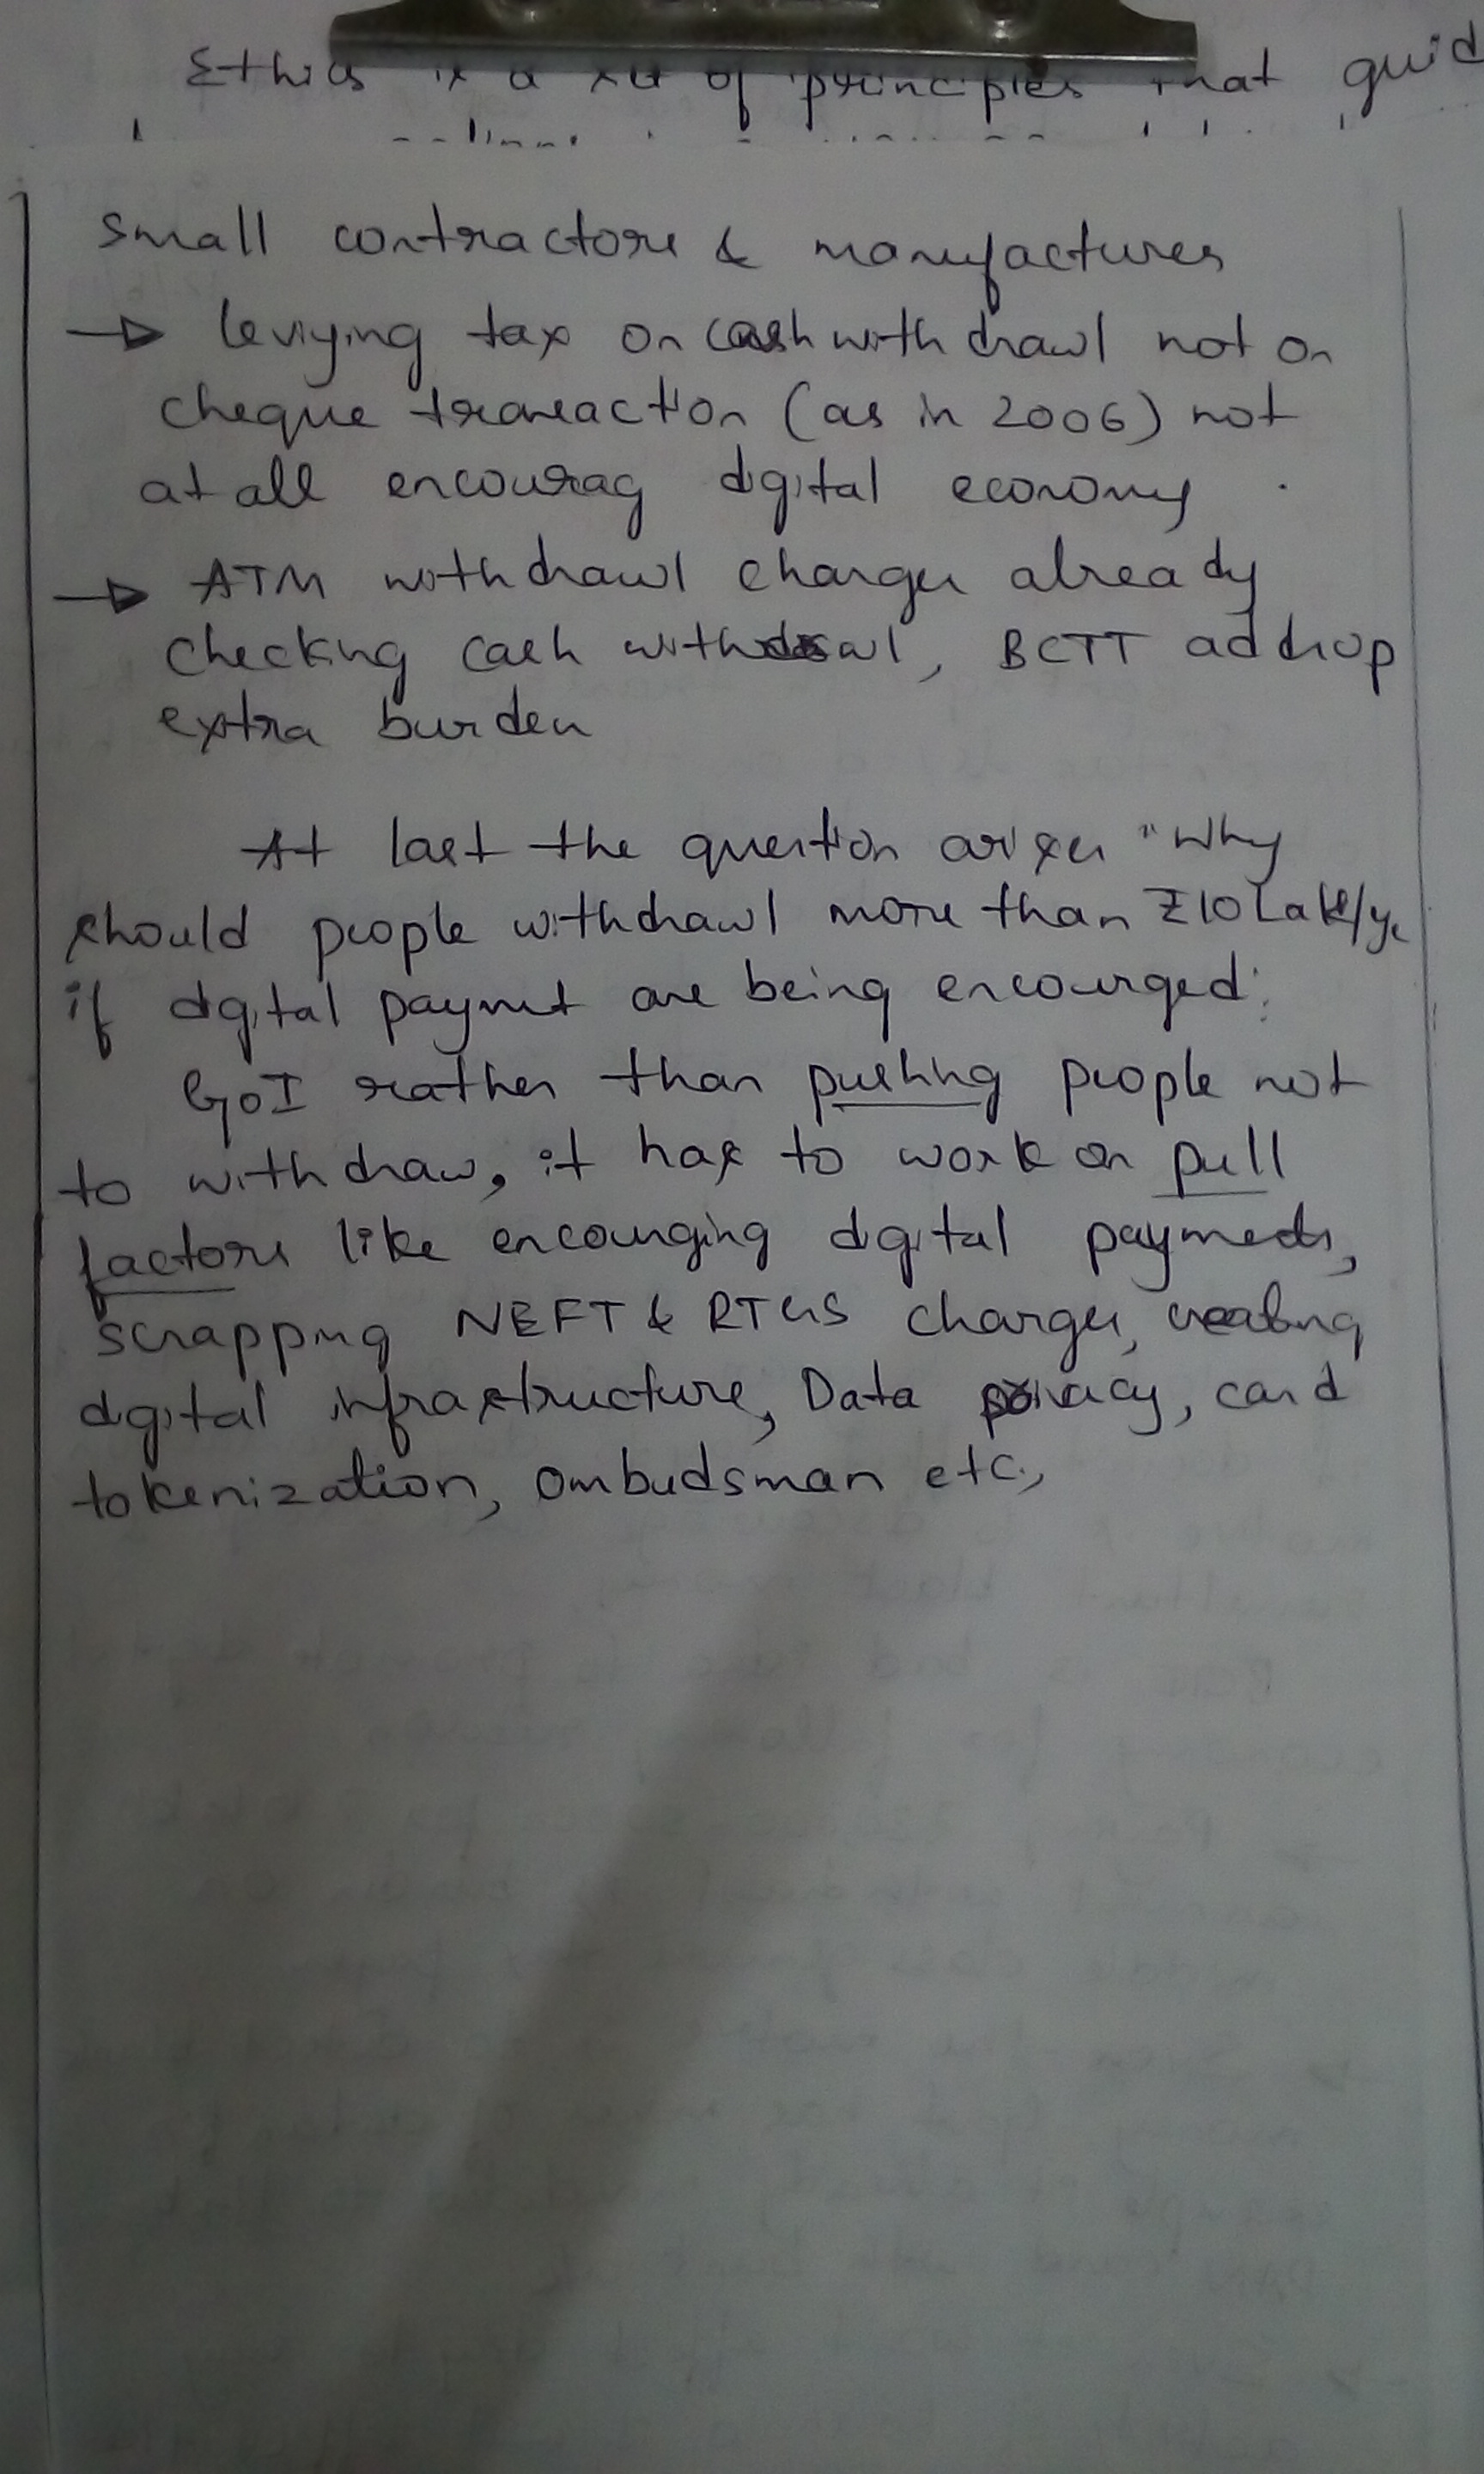 Ethics is a set of principles that guid
small contractors & manufactures
→ levying tax on cash withdrawl not on
cheque transaction (as in 2006) not
at all encourag digital economy.
→ ATM withdrawl charges already
checking cash withdrawl, BCTT
extra burden
At last the question arises "Why
should people withdrawl more than ₹10 Lakh/yr
if digital paymet are being encourged.
GoI rather than pushing people not
to withdraw, it has to work on pull
factors like encouging digital payments,
scrapping NEFT & RTGS charges, creating
digital infrastructure, Data privacy, card
tokenization, ombudsman etc.,